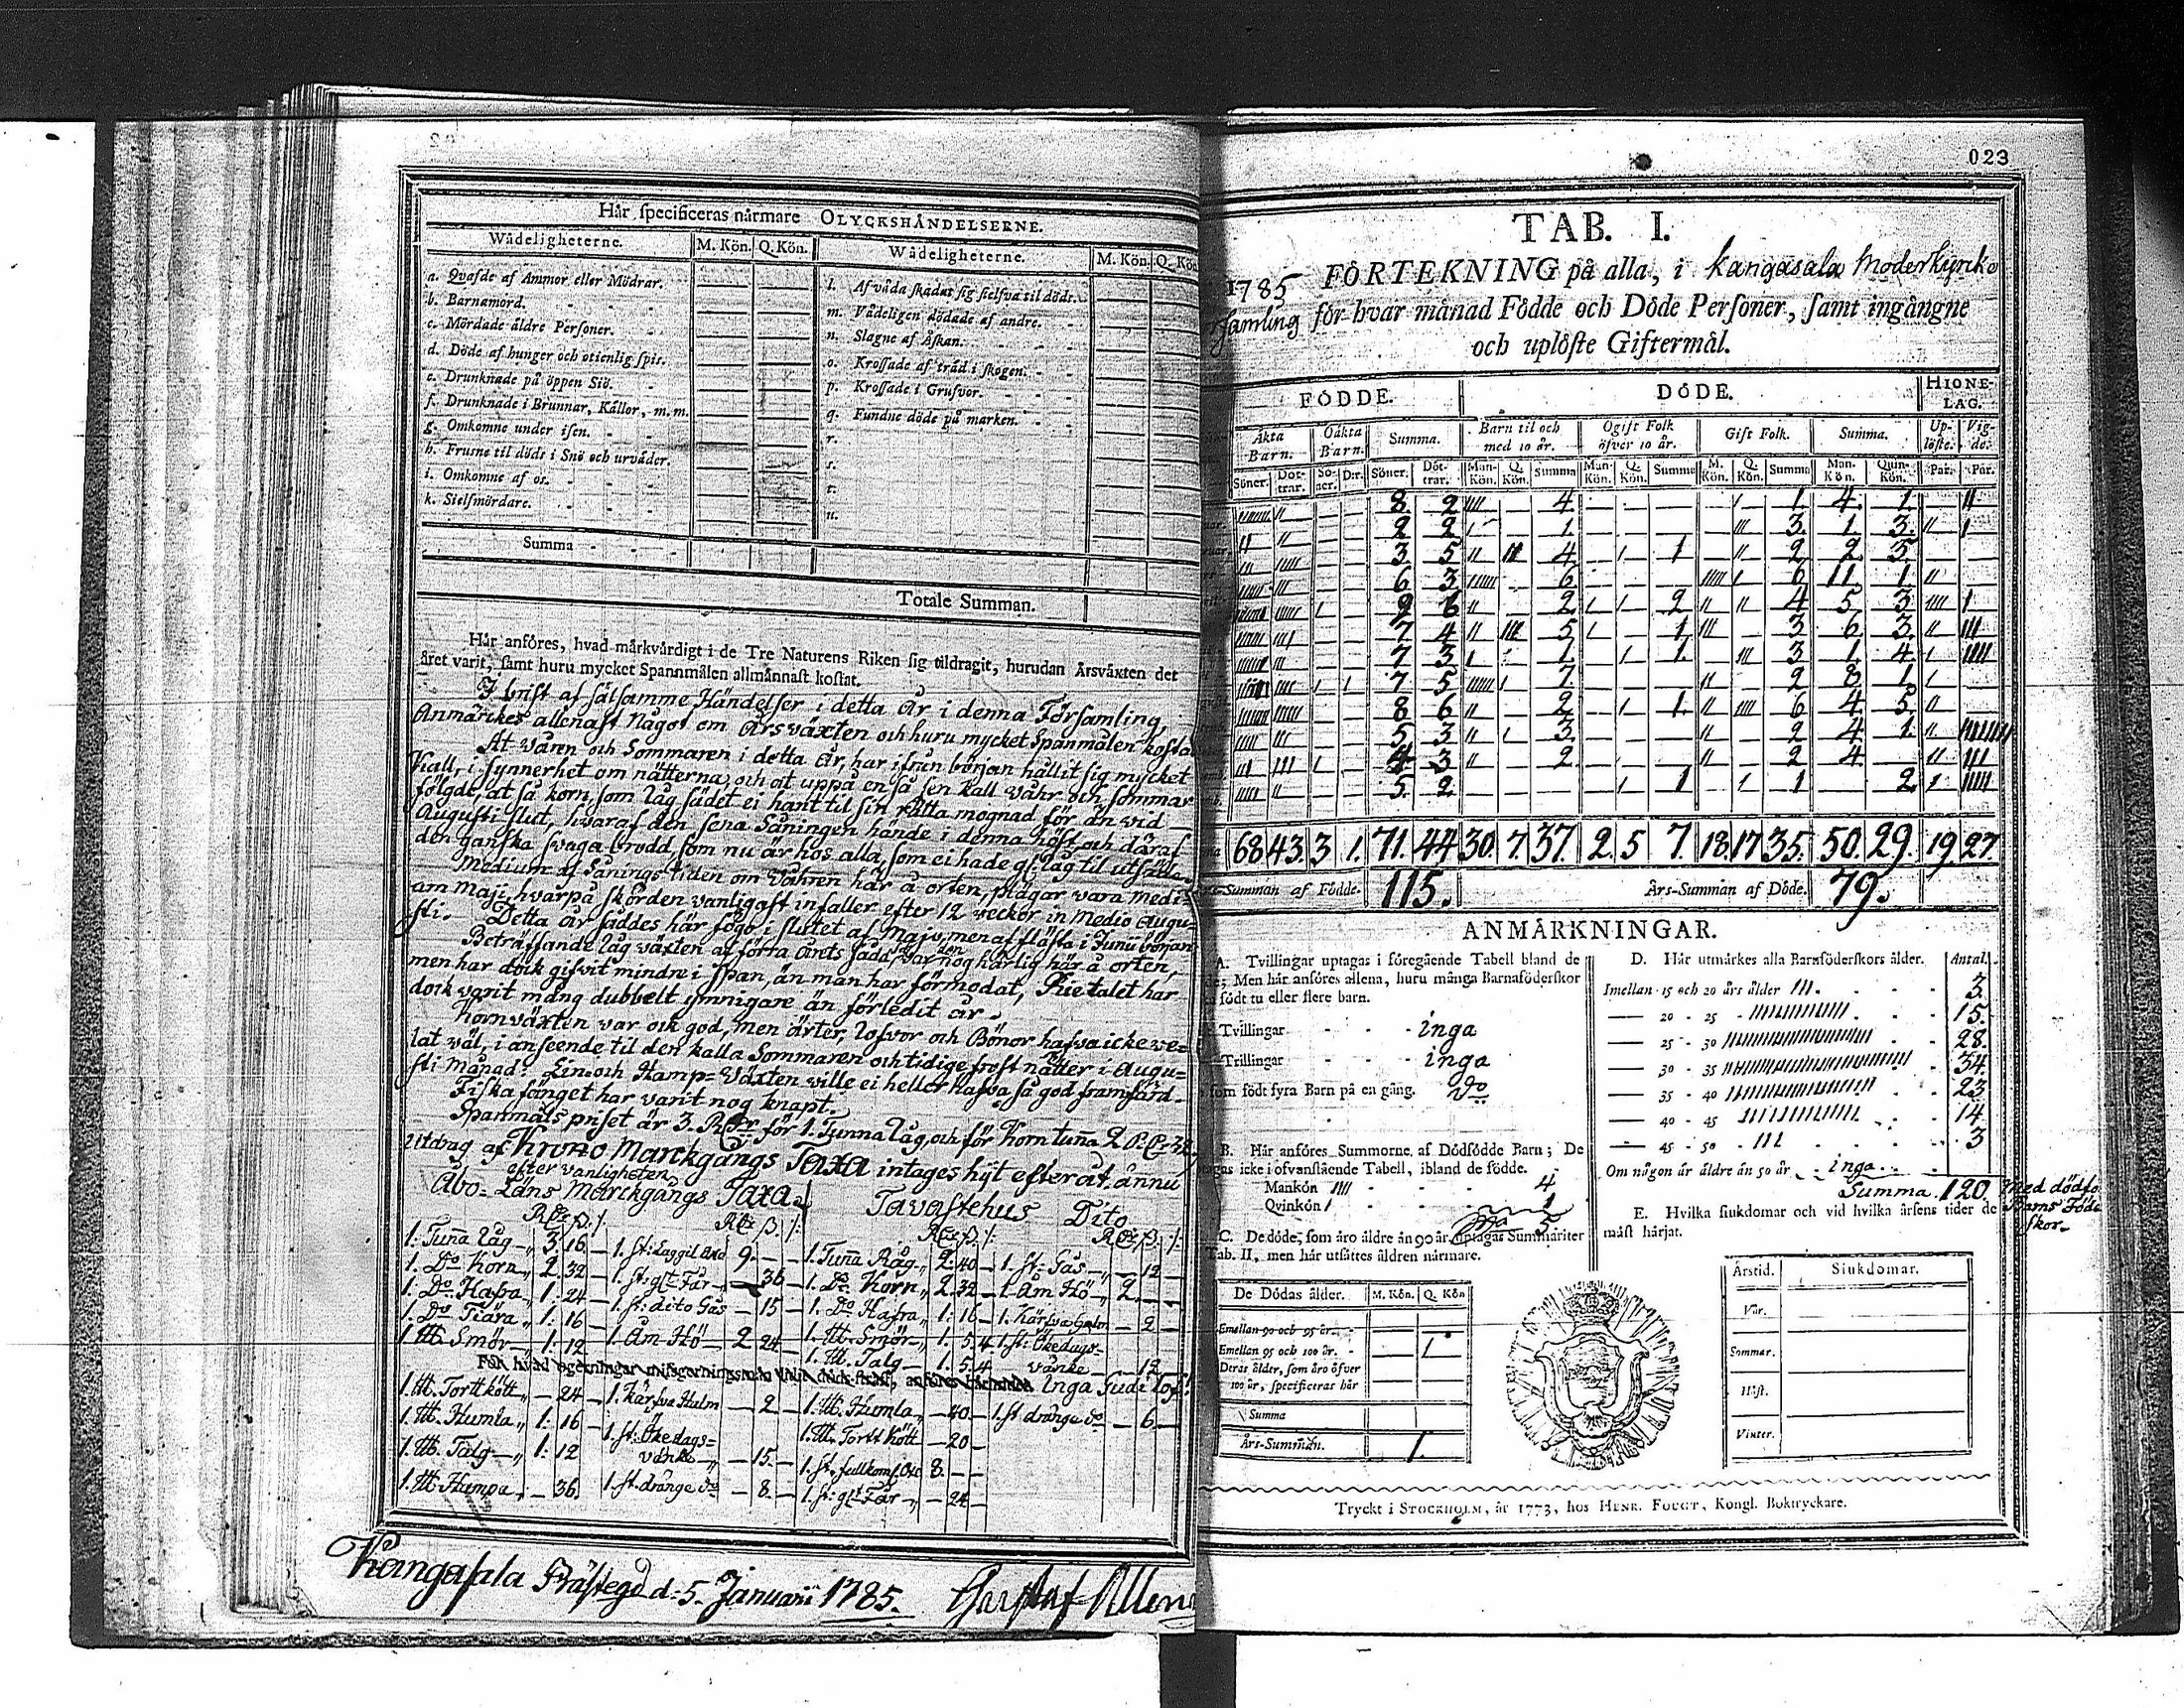 Här specificeras närmare OLYCKSHÄNDELSERNE.
Wådeligheterne. M. Kön. Q. Kön.
a. Qvafde af Ammor eller Mödrar.
b. Barnamord.
c. Mördade äldre Personer.
d. Döde af hunger och otienlig spis.
e. Drunknade på öppen Siö.
f. Drunknade i Brunnar, Kållor, m. m.
g. Omkomne under isen.
h. Frusne til döds i Snö och urväder.
i. Omkomne af os.
k. Sielfmördare.
Summa
Wådeligheterne. M. Kön. Q. Kön
l. Af våda skadat sig sielfva til döds.
m. Vådeligen dödade af andre.
n. Slagne af Åskan.
o. Krossade af träd i skogen.
p. Krossade i Grufvor.
q. Fundne döde på marken.
r.
s.
t.
u.
Totale Summan.
Här anföres, hvad märkvärdigt i de Tre Naturens Riken sig tildragit, hurudan Årsväxten det
året varit, samt huru mycket Spannmålen allmännast kostat.
I brist af sälsamme Händelser i detta år i denna Församling,
Anmärckes allenast något om Årsväxten och huru mycket Spanmålen kostat
At våren och Sommaren i detta år, har ifrån början hållit sig mycket
Kall, i synnerhet om nätterna, och at uppå en så sen kall våhr och sommar
fölgde, at så korn, som råg sädet ei hant til sin rätta mognad för än wid
Augusti slut, hvaraf den sena Såningen hände i denna höst, och däraf
den ganska svaga brodd, som nu är hos alla, som ei hade gl. råg til utsäde.
Medium af Sånings tiden om Våhren här å orten, plägar vara medi=
um Maji, hvarpå skörden vanligast infaller efter 12 veckor in Medio Augu=
sti. Detta år såddes här fögo i slutet af Majo, men af flästa i Junii början
Beträffande råg växten af förra årets sådd, var den nog härlig här å orten,
men har dock gifvit mindre i span, än man har förmodat, Rie talet har
dock varit mång dubbelt ymnigare än förledit år.
Kornväxten var ock god, men ärter, rofvor och Bönor hafva icke ve=
lat väl, i anseende til den kalla Sommaren och tidige frost nätter i Augu=
sti månad. Lin- och Hamp=växten ville ei heller hafva så god framfärd.
Fiska fänget har varit nog knapt.
Spanmåls priset är 3. R.dr för 1. Tunna råg, och för Korn tuna 2
Utdrag af Krono Marckgångs Taxa intages hijt efteråt, ännu
efter vanligheten
Åbo=Läns Marckgångs Taxa
Tavastehus Dito
1. Tuna råg 3. 16
1. Do Korn 2. 32
1. Do Hafra 1. 24
1. Do Tiära 1. 16
1. Smör 1. 12
1. Torrt kött 24
1. Humla 1. 16
1. Talg 1. 12
1. Hampa 36
9.
1. st. gl. Får 36
1. st. dito Gås 15
1. Åm Hö 2 24
1. kärfva Halm 2
1. st. Ökedags=
värke 15
1. st. dränge do 8
1. Tuna Råg 2. 40
1. Do Korn 2. 32
1. Do Hafra 1. 16
1. Smör 1. 5. 4
1. Talg 1. 5. 4
1. Humla 40
1. Torrt kött 20
1. st. fullkoml. Oxe 8
1. st. gl. Får 24
1. st. Gås 12
1. Åm Hö 2
1. Kärfva Halm 2
1. st. Ökedags=
värke 12
1. st. dränge do 6
Kangasala Prästegd d. 5. Januarii 1785.
023
TAB. I.
1785 FÖRTEKNING på alla, i Kangasala Moderkyrko
samling för hvar månad Födde och Döde Personer, samt ingångne
och uplöste Giftermål.
FÖDDE. DÖDE. HIONE-LAG.
Äkta Barn. Oäkta Barn. Summa. Barn til och med 10 år. Ogift Folk öfver 10 år. Gift Folk. Summa. Uplöste. Vigde.
Söner. Döttrar. Söner. D:r. Söner. Döttrar. Man-Kön. Q. Kön. Summa Man-Kön. Q. Kön. Summa M. Kön. Q. Kön. Summa Man-Kön. Quin-Kön. Par. Par.
8 2 4 1 4 1
2 2 1 3 1 3
3 5 4 1 2 2 5
6 3 6 6 11 1
9 6 2 2 4 5 3
7 4 5 1 3 6 3
7 3 1 1 3 1 4
7 5 7 2 8 1
8 6 2 1 6 4 5
5 3 3 2 4 1
4 3 2 2 4
5 2 1 1 2
68 43 3 1. 71. 44 30. 7. 37. 2. 5 7. 18. 17 35. 50. 29. 19. 27.
Summan af Födde. 115. Års-Summan af Döde. 79.
ANMÄRKNINGAR.
A. Tvillingar uptagas i föregående Tabell bland de
Men här anföres allena, huru många Barnaföderskor
födt tu eller flere barn.
Tvillingar - - - inga
Trillingar - - - inga
som födt fyra Barn på en gång. do
B. Här anföres Summorne af Dödfödde Barn; De
tagas icke i ofvanstående Tabell, ibland de födde.
Mankön 4
Qvinkön 1
5
C. De döde, som äro äldre än 90 år, uptagas Summariter
Tab. II, men här utsättes åldren närmare.
De Dödas ålder. M. Kön. Q. Kön
Emellan 90 och 95 år.
Emellan 95 och 100 år. 1
Deras ålder, som äro öfver
100 år, specificeras här
Summa
Års-Summan. 1.
D. Här utmärkes alla Barnföderskors ålder. Antal.
Imellan 15 och 20 års ålder 3.
20 - 25 15.
25 - 30 28.
30 - 35 34.
35 - 40 23
40 - 45 14
45 - 50 3
Om någon är äldre än 50 år inga
Summa. 120. med dödfö
Barns Föde
skor
E. Hvilka siukdomar och vid hvilka årsens tider de
mäst härjat.
Årstid. Siukdomar.
Vår.
Sommar.
Höst.
Vinter.
Tryckt i STOCKHOLM, år 1773, hos HENR. FOUGT, Kongl. Boktryckare.